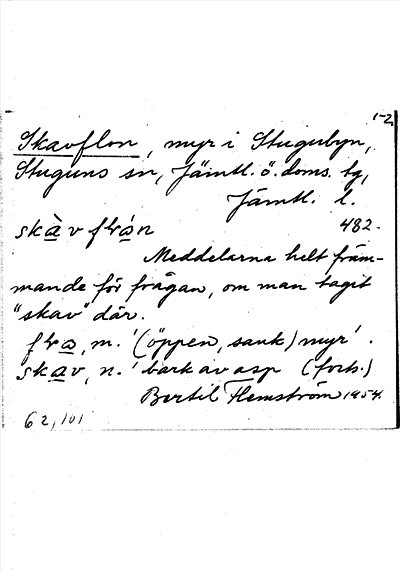 1-2.
Skavflon, myr i Stugubyn,
Stuguns sn, Jämtl. ö. doms. tg,
Jämtl. l.
skàv flón 482.
Meddelarna helt främ-
mande för frågan, om man tagit
"skav" där.
fla, m. '(öppen, sank) myr'.
skav, n. 'bark av asp (forts.)
Bertil Flemström 1954.
62,101